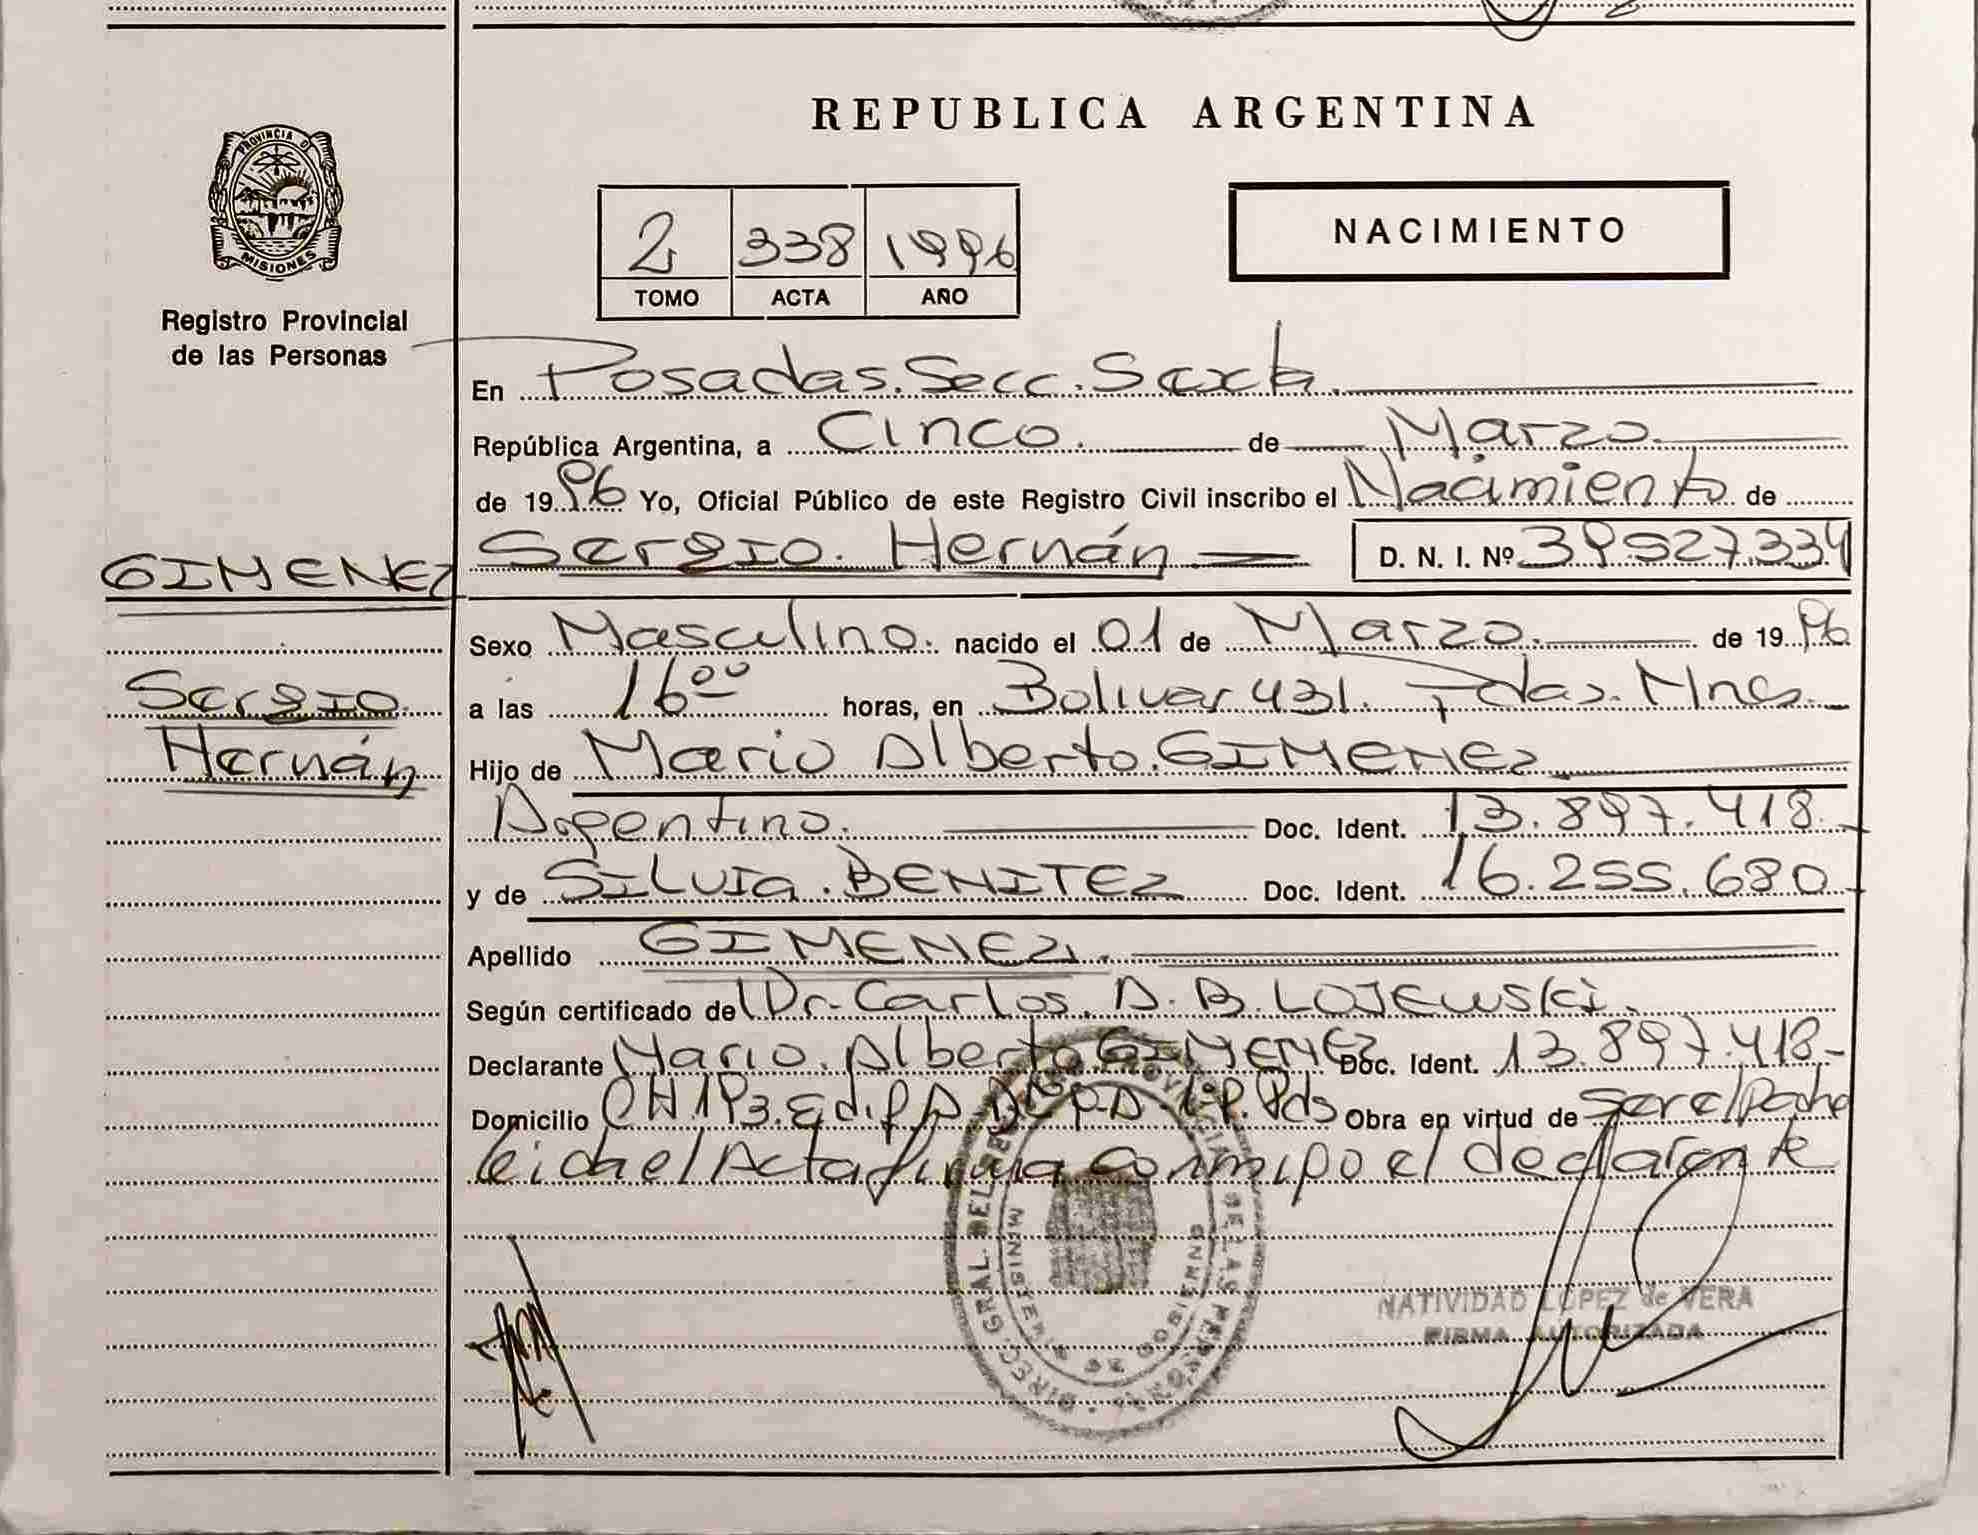 REPUBLICA ARGENTINA
PROVINCIA D
MISIONES
Registro Provincial
de las Personas
2 338 1996
TOMO ACTA AÑO
NACIMIENTO
En Posadas. Secc. Sexta.
República Argentina, a Cinco. de Marzo.
de 1996 Yo, Oficial Público de este Registro Civil inscribo el Nacimiento de
GIMENEZ
Sergio. Hernán D. N. I. Nº 39.527.334
Sexo Masculino. nacido el 01 de Marzo. de 1996
Sergio
Hernán
a las 16 00 horas, en Bolivar 431. Pdas. Mnes.
Hijo de Mario Alberto. GIMENEZ
Argentino. Doc. Ident. 13.897.418.
y de SILVIA. BENITEZ Doc. Ident. 16.255.680
Apellido GIMENEZ.
Según certificado de Dr. Carlos. A. B. LOJEWSKi.
Declarante Mario. Alberto GIMENEZ Doc. Ident. 13.897.418-
Domicilio CH 193. Edif Pds Obra en virtud de ser el padre
leida el Acta firma conmigo el declarante
NATIVIDAD LOPEZ de VERA
FIRMA AUTORIZADA